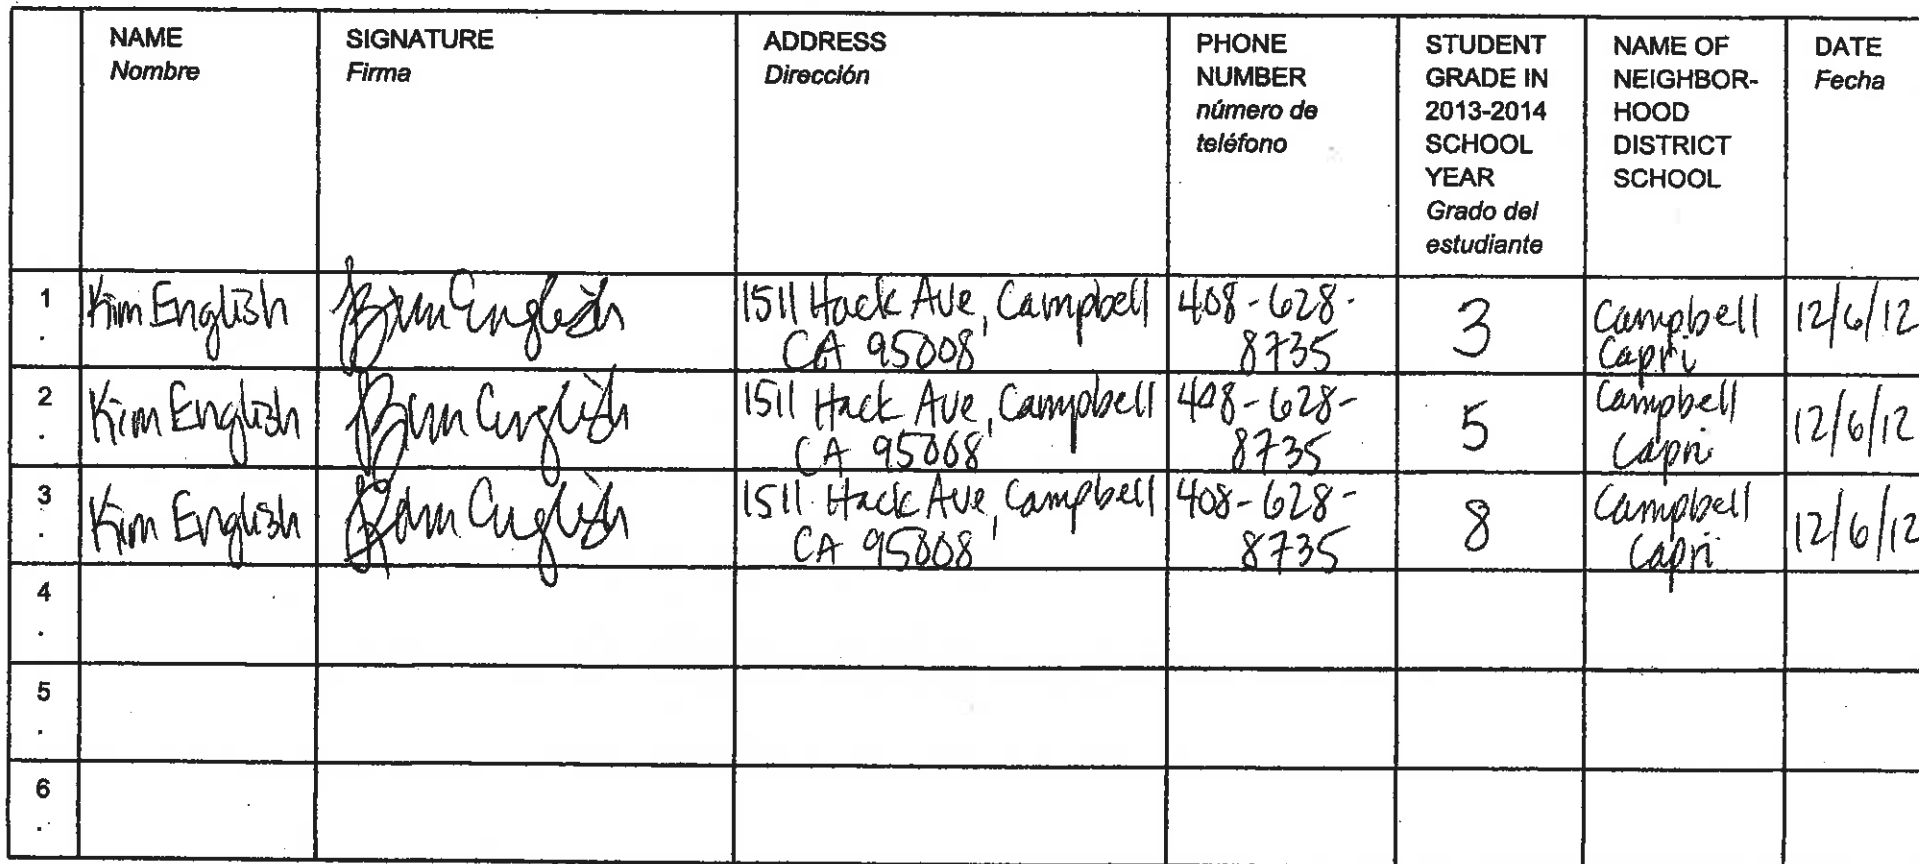 NAME
Nombre
SIGNATURE
Firma
ADDRESS
Dirección
PHONE
NUMBER
número de
teléfono
STUDENT
GRADE IN
2013-2014
SCHOOL
YEAR
Grado del
estudiante
NAME OF
NEIGHBOR-
HOOD
DISTRICT
SCHOOL
DATE
Fecha
1
.
Kim English
Kim English
1511 Hack Ave, Campbell
CA 95008
408-628-
8735
3
Campbell
Capri
12/6/12
2
.
Kim English
Kim English
1511 Hack Ave, Campbell
CA 95008
408-628-
8735
5
Campbell
Capri
12/6/12
3
.
Kim English
Kim English
1511 Hack Ave, Campbell
CA 95008
408-628-
8735
8
Campbell
Capri
12/6/12
4
.
5
.
6
.